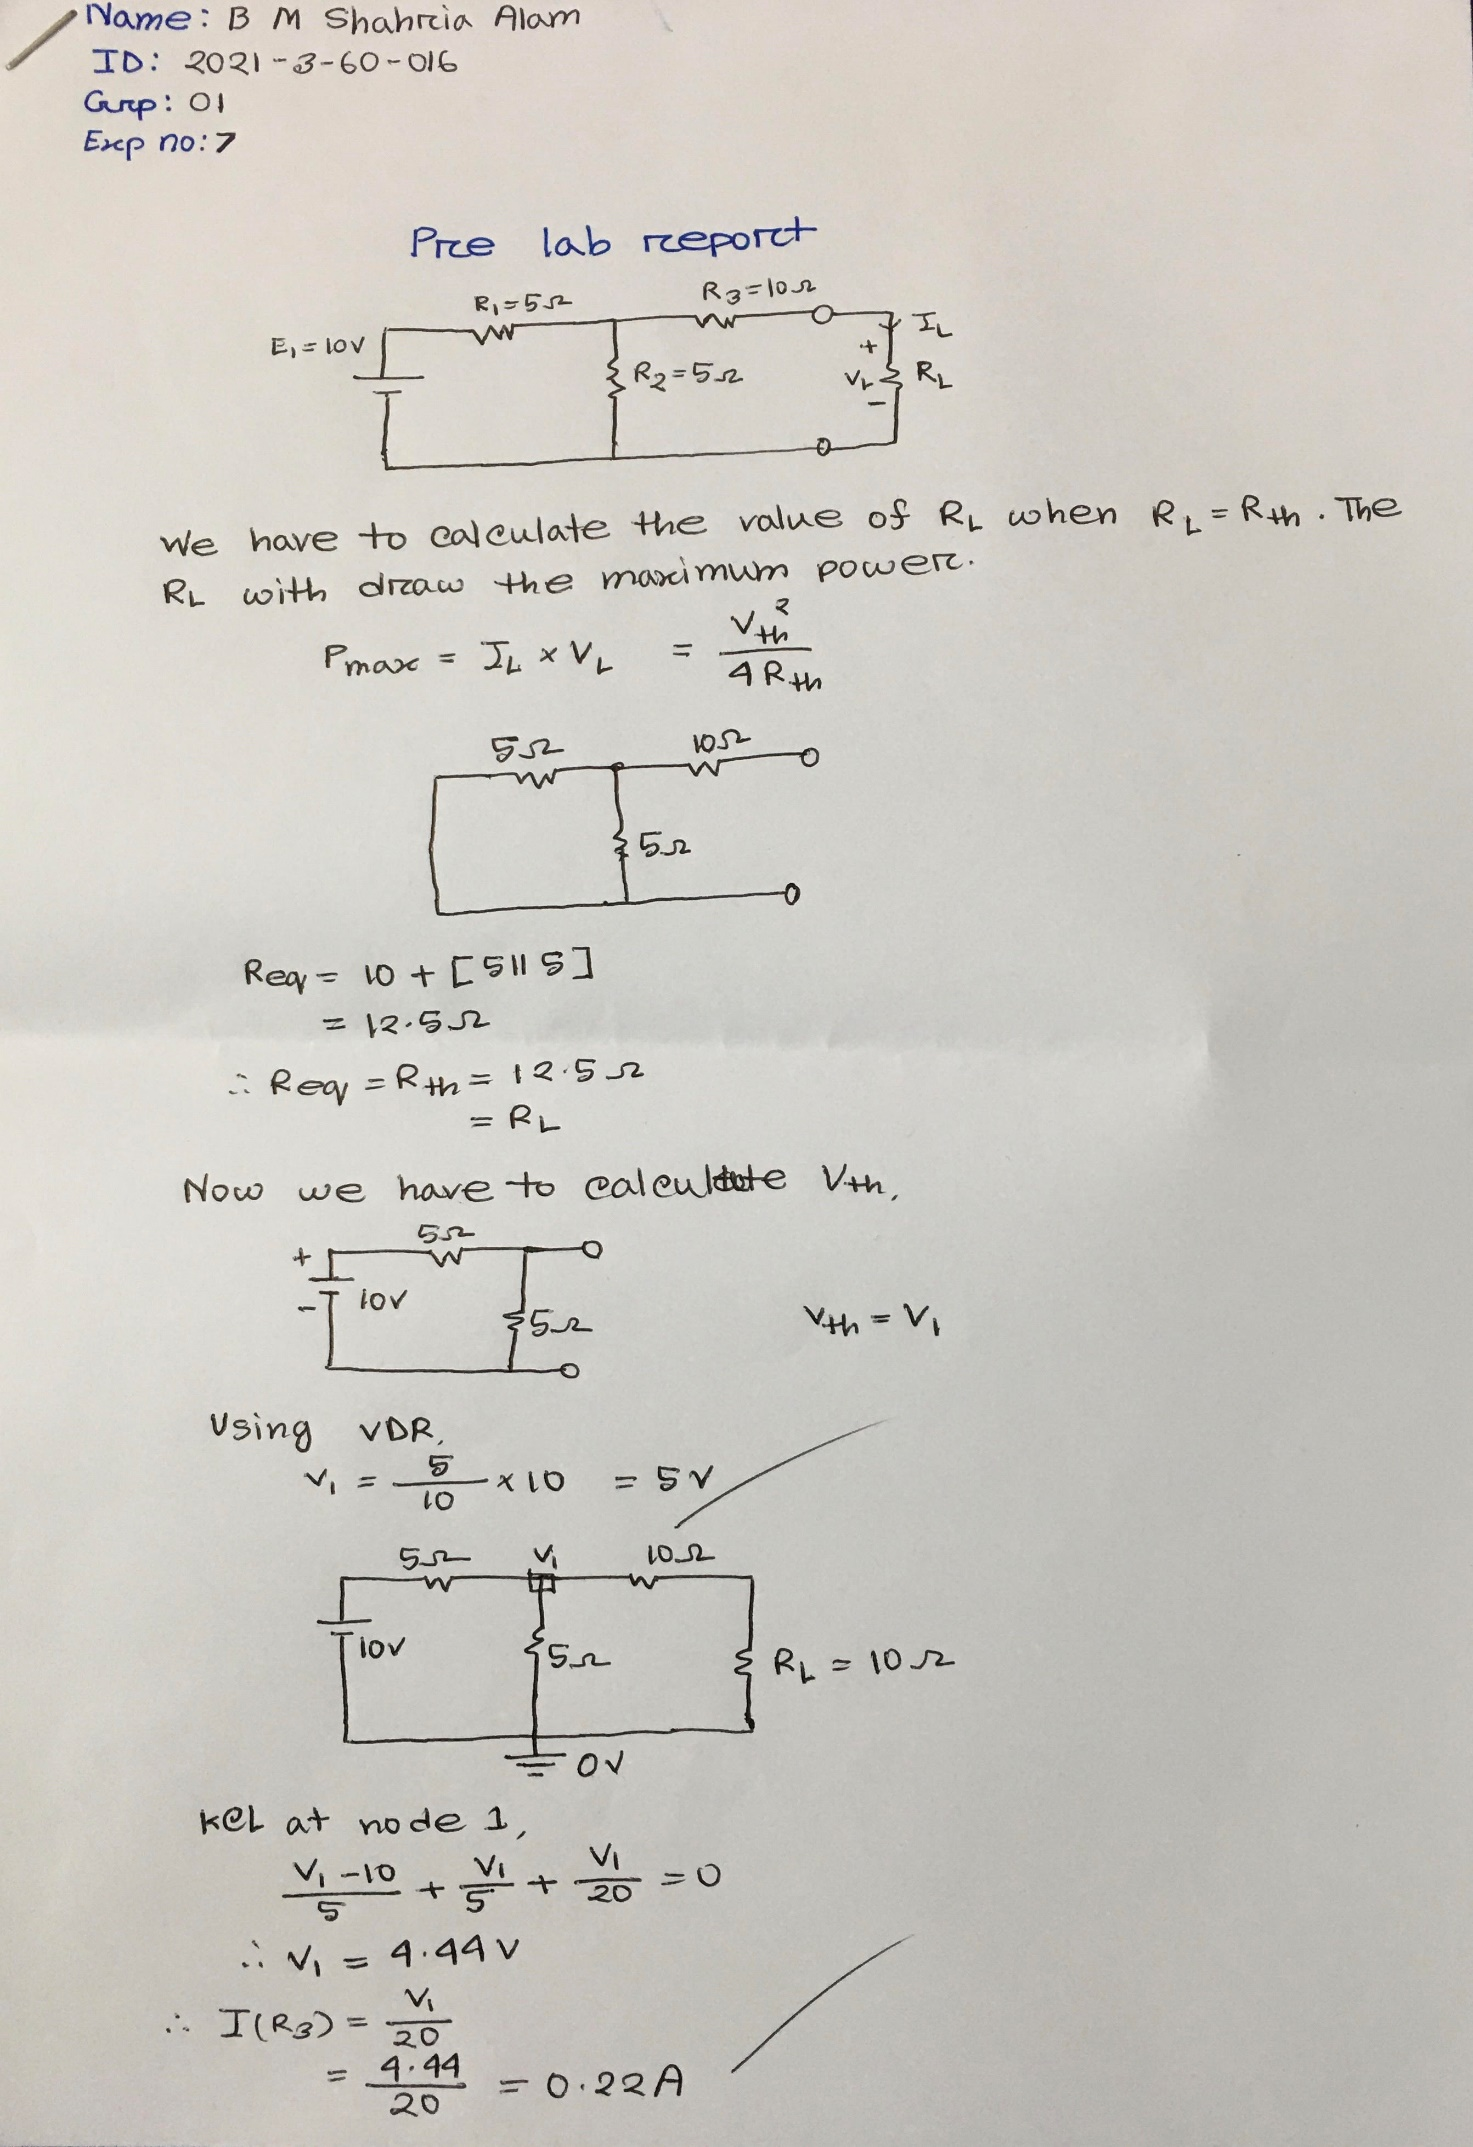 Name: B M Shahrcia Alam
ID: 2021-3-60-016
Grp: 01
Exp no: 7
Pre lab report
R₁=5Ω
R₃=10Ω
E₁=10V
I_L
+
R₂=5Ω
V_L
R_L
-
We have to calculate the value of R_L when R_L = R_th. The
R_L with draw the maximum power.
P_max = I_L × V_L = V_th² / 4R_th
5Ω
10Ω
5Ω
Req = 10 + [5||5]
= 12.5Ω
∴ Req = R_th = 12.5Ω
= R_L
Now we have to calculate V_th,
5Ω
+
10V
-
5Ω
V_th = V₁
Using VDR,
V₁ = 5/10 × 10 = 5V
5Ω
V₁
10Ω
10V
5Ω
R_L = 10Ω
0V
KCL at node 1,
(V₁-10)/5 + V₁/5 + V₁/20 = 0
∴ V₁ = 4.44V
∴ I(R₃) = V₁/20
= 4.44/20 = 0.22A